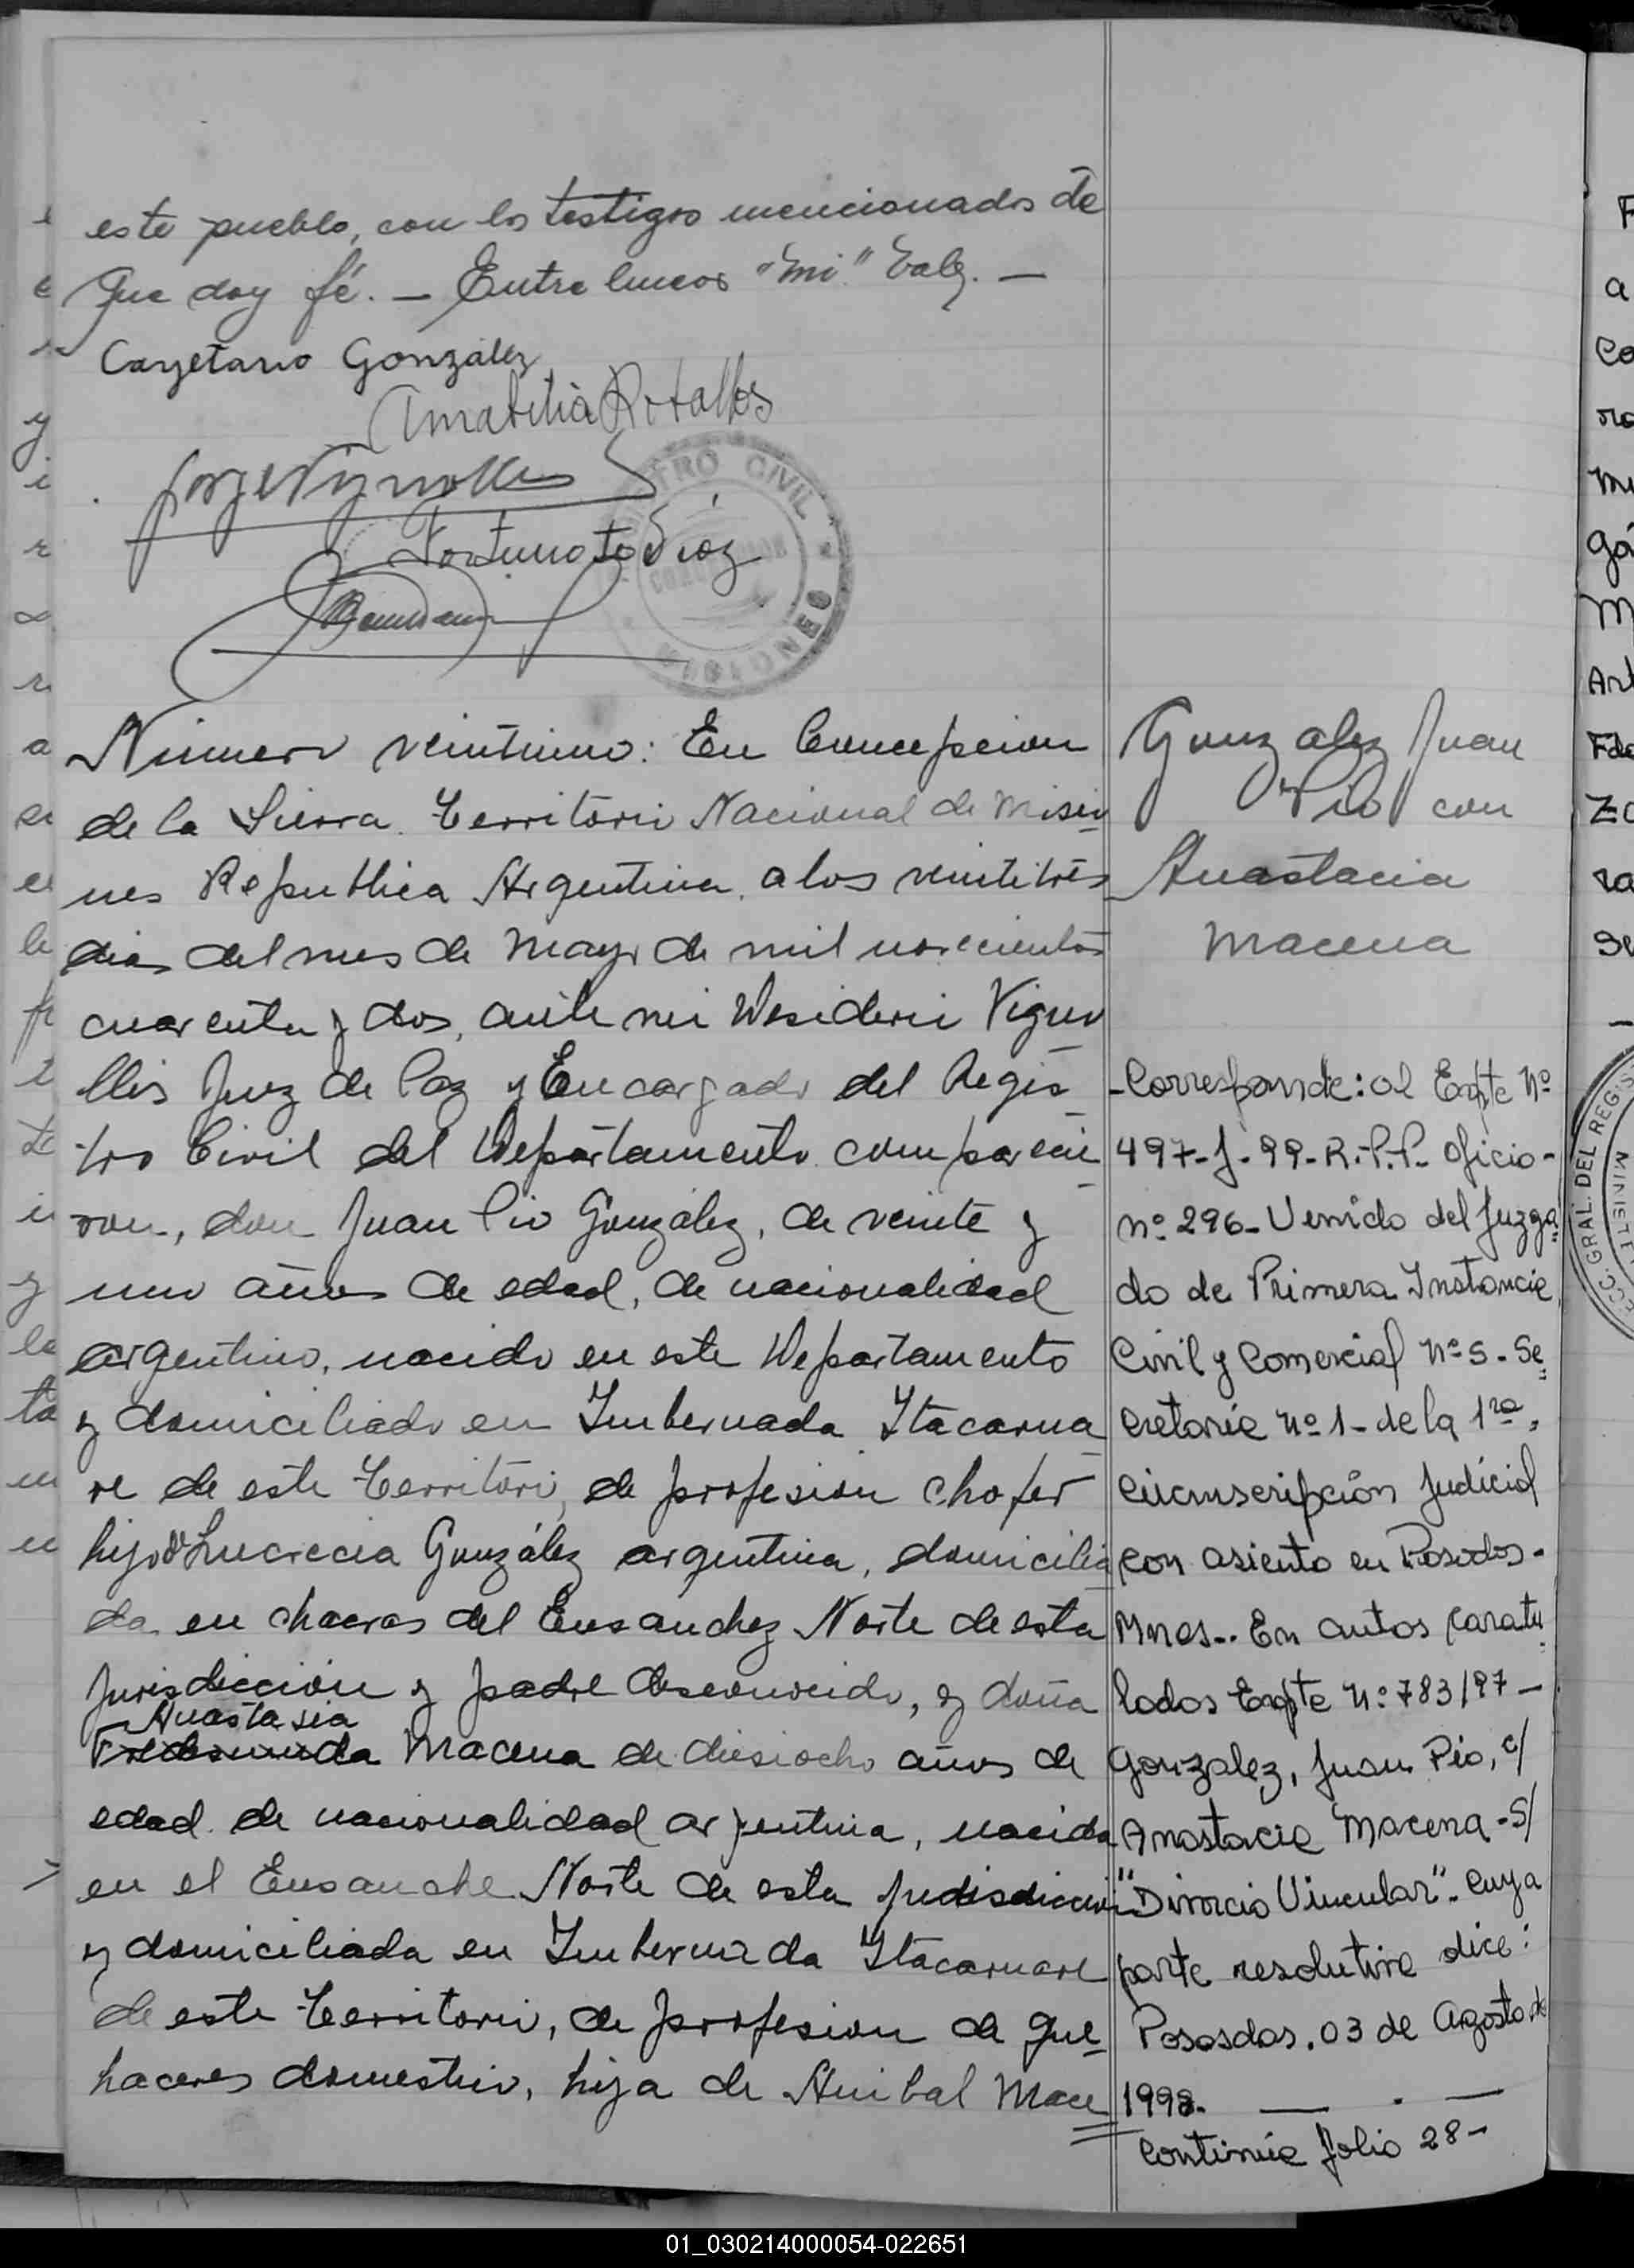 este pueblo, con los testigos mencionados de
que doy fé. — Entre lineas "mi" Vale. —
Cayetano González
Fortunato
REGISTRO CIVIL
MISIONES
Número veintiuno: En Concepcion
de la Sierra. Territorio Nacional de Misio
nes Republica Argentina. a los veintitrés
dias del mes de Mayo de mil novecientos
cuarenta y dos, ante mi Desiderio Vigno
lles Juez de Paz y Encargado del Regis
tro Civil del Departamento comparecie
ron, don Juan Pio González, de veinte y
uno años de edad, de nacionalidad
argentino, nacido en este Departamento
y domiciliado en Imbernada Itacarua
re de este Territorio, de profesion chofer
hijo de Lucrecia González argentina, domicilia
da en chacras del Ensanchez Norte de esta
Jurisdiccion y padre desconocido, y doña
Anastasia
Macena de diesiocho años de
edad. de nacionalidad argentina, nacida
en el Ensanche Norte de esta Judisdiccion
y domiciliada en Imbernada Itacaruare
de este Territorio, de profesion de que
haceres domestico, hija de Anibal Mace
Gonzalez Juan
Pio con
Anastacia
Macena
-Corresponde: al Expte Nº
497-J-99-R.P.P- Oficio-
nº 296- Venido del Juzga
do de Primera Instancia
Civil y Comercial Nº 5- Se
cretaria Nº 1- de la 1ra,
Circunscripción Judicial
con asiento en Posadas-
Mnes-. En autos caratu
lados Expte Nº 783/97-
Gonzalez, Juan Pio, c/
Anastacia Macena -S/
"Divorcio Vincular"- cuya
parte resolutiva dice:
Posasdas. 03 de Agosto de
1998. — . —
Continúa folio 28-
GRAL. DEL REGIS
01_030214000054-022651